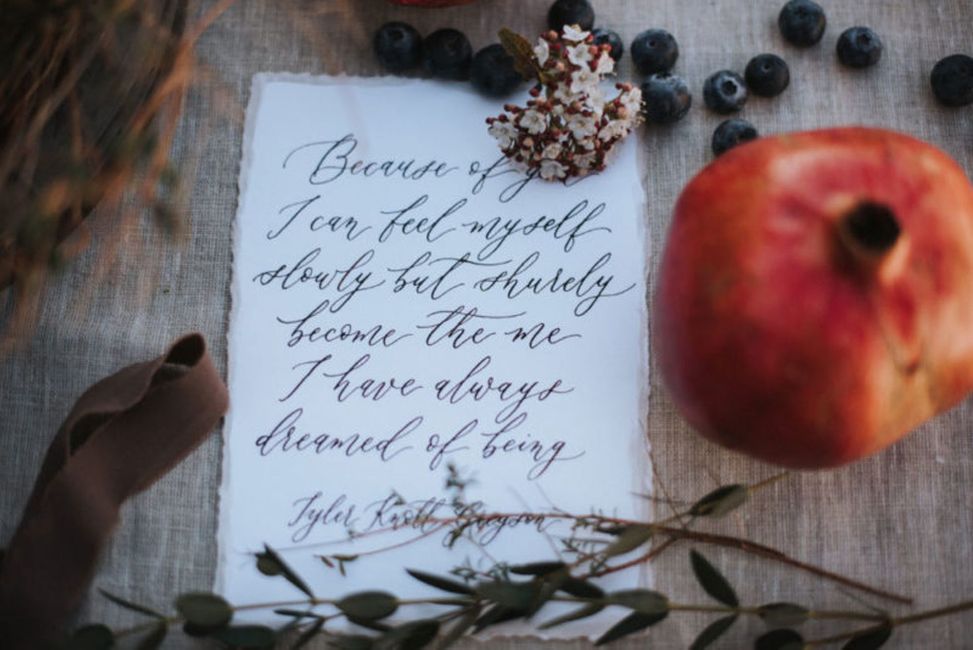 Because of
I can feel myself
slowly but shurely
become the me
I have always
dreamed of being
Tyler Knott Gregson